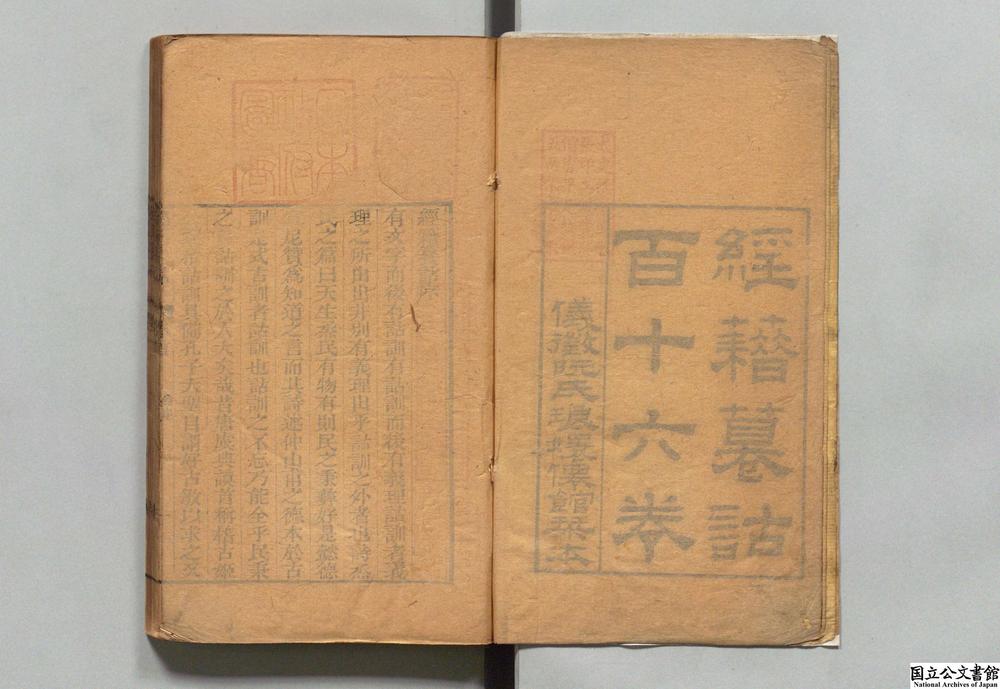 經籍籑詁
百十六卷
儀徵阮氏琅嬛僊館栞本
日本政府圖書
經籍籑詁序
有文字而後有詁訓有詁訓而後有義理詁訓者義
理之所由出非別有義理出乎詁訓之外者也詩烝
民之篇曰天生烝民有物有則民之秉彝好是懿德
尼贊爲知道之言而其詩述仲山甫之德本於古
訓是式古訓者詁訓也詁訓之不忘乃能全乎民秉
之詁訓之於人大矣哉昔唐虞典謨首稱稽古姬
爾雅詁訓具備孔子大聖自謂好古敏以求之又
国立公文書館
National Archives of Japan